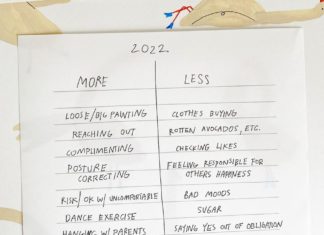 2022
MORE LESS
LOOSE/BIG PAINTING CLOTHES BUYING
REACHING OUT ROTTEN AVOCADOS, ETC.
COMPLIMENTING CHECKING LIKES
POSTURE CORRECTING FEELING RESPONSIBLE FOR OTHERS HAPPINESS
RISK/OK W/ UNCOMFORTABLE BAD MOODS
DANCE EXERCISE SUGAR
HANGING W/ PARENTS SAYING YES OUT OF OBLIGATION